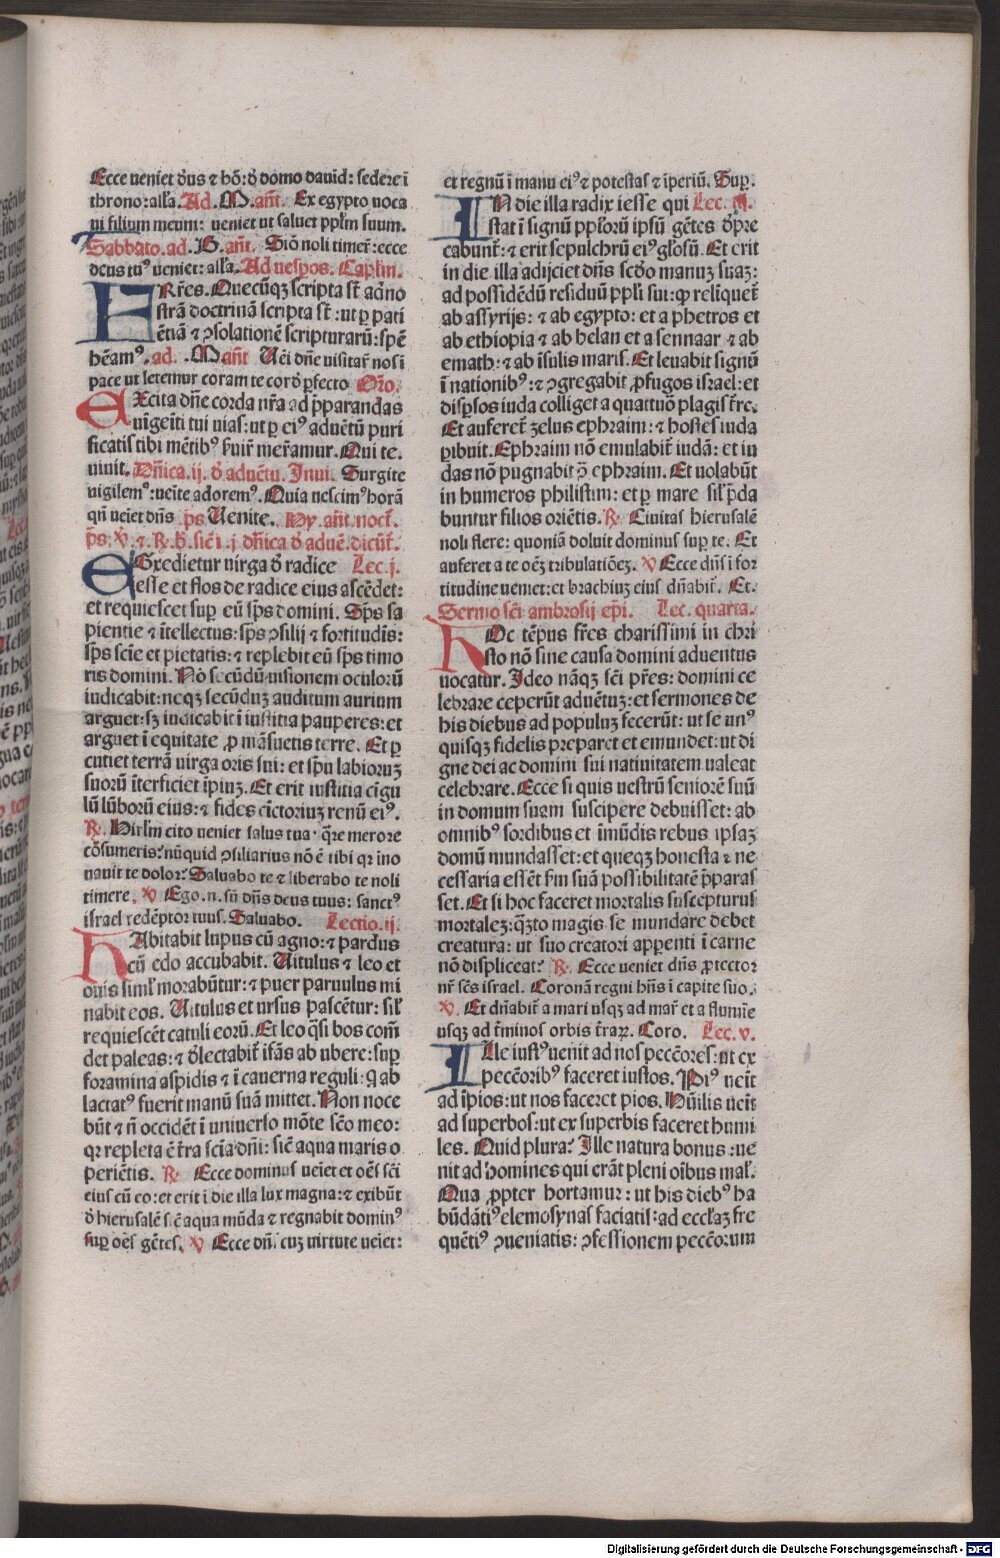 Ecce ueniet d̄us ⁊ hō: d̄ domo dauid: sedere ī
throno: alľa. Ad. M. añt. Ex egypto uoca
ui filium meum: ueniet ut saluet ppľm suum.
Sabbato. ad. B. añt. Siō noli timeř: ecce
deus tuꝰ ueniet: alľa. Ad uesp̄os. Capľm.
FRr̄es. Quecūqꝫ scripta st̄ ad no
strā doctrinā scripta st̄: ut ꝑ pati
ētiā ⁊ ꝯsolationē scripturarū: spē
hēamꝰ. ad. Mañt Ueī dn̄e uisitař nos ī
pace ut letemur coram te cord̄ ꝑfecto Or̄o.
EXcita dn̄e corda nr̄a ad p̄parandas
uīgeīti tui uias: ut ꝑ eiꝰ aduētū puri
ficatis tibi mētibꝰ ꝼuiř meřamur. Qui te.
uiuit. Dn̄ica. ij. d̄ aduētu. Inui. Surgite
uigilemꝰ: ueīte adoremꝰ. Quia nescimꝰ horā
qn̄ ueīet dn̄s ps̄ Uenite. Hy. añt. noct̄.
ps̄. v̄. ⁊. ℟. ħ. sic̄ ī. j dn̄ica d̄ aduē. dicūt̄.
EGredietur uirga d̄ radice Lec. j.
iesse et flos de radice eius ascēdet:
et requiescet sup̱ eū sp̄s domini. Sp̄s sa
pientie ⁊ ītellectus: sp̄s ꝯsilij ⁊ fortitudīs:
sp̄s scīe et pietatis: ⁊ replebit eū sp̄s timo
ris domini. Nō secūdū uisionem oculorū
iudicabit: neqꝫ secūduꝫ auditum aurium
arguet: sꝫ iudicabit ī iustitia pauperes: et
arguet ī equitate ꝓ māsuetis terre. Et ꝑ
cutiet terrā uirga oris sui: et sp̄u labioruꝫ
suorū īterficiet īpiuꝫ. Et erit iustitia cīgu
lū lūborū eius: ⁊ fides cīctoriuꝫ renū eiꝰ.
℟. Hirľm cito ueniet salus tua. qr̄e merore
cōsumeris? nūquid ꝯsiliarius nō ē tibi qꝛ īno
uauit te dolor? Saluabo te ⁊ liberabo te noli
timere. v̄ Ego. n. sū dn̄s deus tuus: sanctꝰ
israel redēptor tuus. Saluabo. Lectio. ij.
HAbitabit lupus cū agno: ⁊ pardus
cū edo accubabit. Uitulus ⁊ leo et
ouis simľ morabūtur: ⁊ puer paruulus mi
nabit eos. Uitulus et ursus pascētur: siľ
requiescēt catuli eorū. Et leo q̄si bos com̄
det paleas: ⁊ d̄lectabit̄ ifās ab ubere: sup̱
foramina aspidis ⁊ ī cauerna reguli: q̄ ab
lactatꝰ fuerit manū suā mittet. Non noce
būt ⁊ n̄ occidēt ī uniuerso mōte scō meo:
qꝛ repleta ē t̄ra scīa dn̄i: sic̄ aqua maris o
periētis. ℟ Ecce dominus ueīet et oēs scī
eius cū eo: et erit ī die illa lux magna: ⁊ exibūt
d̄ hierusalē sic̄ aqua mūda ⁊ regnabit dominꝰ
sup̱ oēs gētes. v̄ Ecce dn̄. cuꝫ uirtute ueīet:
et regnū ī manu eiꝰ ⁊ potestas ⁊ īperiū. Sup̱.
IN die illa radix iesse qui Lec. iij.
stat ī signū ppľorū ipsū gētes d̄pre
cabunt̄: ⁊ erit sepulchrū eiꝰ gľosū. Et erit
in die illa adijciet dn̄s scd̄o manuꝫ suaꝫ:
ad possidēdū residuū ppľi sui: qd̄ relīquet̄
ab assyrijs: ⁊ ab egypto: et a phetros et
ab ethiopia ⁊ ab helan et a sennaar ⁊ ab
emath: ⁊ ab īsulis maris. Et leuabit signū
ī nationibꝰ: ⁊ ꝯgregabit ꝓfugos israel: et
disꝑsos iuda colliget a quattuor̄ plagis t̄re.
Et auferet̄ zelus ephraim: ⁊ hostes iuda
ꝑibuīt. Ephraim nō emulabit̄ iudā: et iu
das nō pugnabit ꝯ̄ ephraim. Et uolabūt
in humeros philistim: et ꝑ mare siľ p̄da
buntur filios oriētis. ℟. Ciuitas hierusalē
noli flere: quoniā doluit dominus sup̱ te. Et
auferet a te oēꝫ tribulationēꝫ. v̄ Ecce dn̄s ī for
titudine ueniet: et brachiuꝫ eius dn̄abit̄. Et.
Sermo scī ambrosij ep̄i. Lec. quarta.
HOc tēpus fr̄es charissimi in chri
sto nō sine causa domini aduentus
uocatur. Ideo nāqꝫ scī pr̄es: domini ce
lebrare ceperūt aduētuꝫ: et sermones de
his diebus ad populuꝫ fecerūt: ut se unꝰ
quisqꝫ fidelis preparet et emundet: ut di
gne dei ac domini sui natiuitatem ualeat
celebrare. Ecce si quis uestrū seniorē suū
in domum suam suscipere debuisset: ab
omnibꝰ sordibus et īmūdis rebus ipsaꝫ
domū mundasset: et queqꝫ honesta ⁊ ne
cessaria essēt ꝼm suā possibilitatē p̄paras
set. Et si hoc faceret mortalis suscepturus
mortaleꝫ: q̄ꝫto magis se mundare debet
creatura: ut suo creatori appenti ī carne
nō displiceat? ℟. Ecce ueniet dn̄s ꝓtector
nr̄ scs̄ israel. Coronā regni hn̄s ī capite suo.
v̄. Et dn̄abit̄ a mari usqꝫ ad mař et a flumīe
usqꝫ ad t̄minos orbis t̄raꝝ. Coro. Lec. v.
ILle iustꝰ uenit ad nos peccōres: ut ex
peccōribꝰ faceret iustos. Piꝰ ueīt
ad īpios: ut nos faceret pios. Hūilis ueīt
ad superbos: ut ex superbis faceret humi
les. Quid plura? Ille natura bonus: ue
nit ad homines qui erāt pleni oībus maľ.
Qua ꝓpter hortamur: ut his diebꝰ ha
būdātiꝰ elemosynas faciatis: ad eccľaꝫ fre
quētiꝰ ꝯueniatis: ꝯfessionem peccōrum
Digitalisierung gefördert durch die Deutsche Forschungsgemeinschaft - DFG